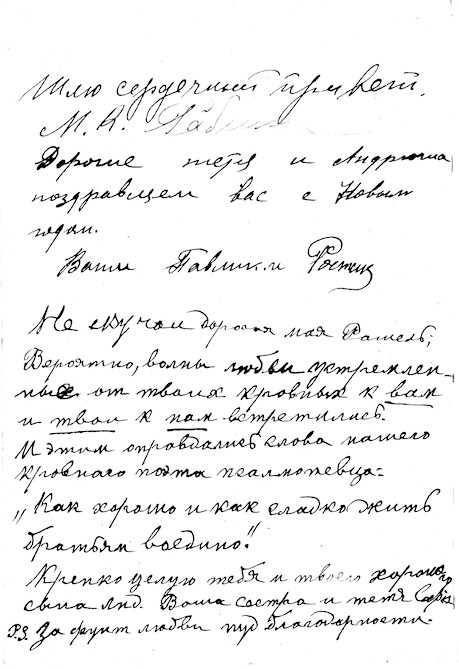 Шлю сердечный привет.
М. А.
Дорогие тетя и Андрюша
поздравляем вас с Новым
годом.
Ваши Павлик и Ростик
Не скучай дорогая моя Рашель,
Вероятно, волны любви устремлен-
ные от твоих кровных к вам
и твои к нам встретились.
И этим оправдались слова нашего
кровнаго поэта псалмопевца:
„Как хорошо и как сладко жить
братьям воедино."
Крепко целую тебя и твоего хорошего
сына Ваша сестра и тетя
P.S. За фунт любви пуд благодарности.